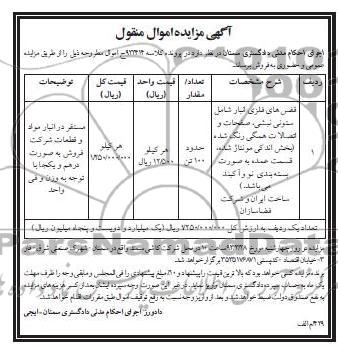 آگهی مزایده اموال منقول
اجرای احکام مدنی دادگستری سمنان در نظر دارد در پرونده کلاسه ۹۲۳۴۱۴ج اموال مطروحه ذیل را از طریق مزایده
عمومی و حضوری به فروش برساند.
ردیف شرح مشخصات تعداد/ مقدار قیمت واحد (ریال) قیمت کل (ریال) توضیحات
۱
قفس های فلزی انبار شامل
ستونی نبشی، صفحات و
اتصالات همگی رنگ شده
(بخش اندکی مونتاژ شده،
قسمت عمده به صورت
بسته بندی نو و آکبند
می باشد.)
ساخت ایران و شرکت
فضاسازان
حدود
۱۰۰ تن
هر کیلو
۱۲/۵۰۰ ریال
هر کیلو
۱/۲۵۰/۰۰۰/۰۰۰
مستقر در انبار مواد
و قطعات شرکت
فروش به صورت
درهم و یکجا با
توجه به وزن و فی
واحد
تعداد یک ردیف به ارزش کل ۱/۲۵۰/۰۰۰/۰۰۰ ریال (یک میلیارد و دویست و پنجاه میلیون ریال)
مزایده در روز چهارشنبه مورخ ساعت ۱۰ در محل شرکت واقع در سمنان - شهرک صنعتی شرق -
۳- خیابان اقتصاد - کدپستی ۳۵۳۵۱۷۶۸۷۱ برگزار خواهد شد.
برنده مزایده کسی خواهد بود که بالاترین قیمت را پیشنهاد و ۱۰٪ مبلغ پیشنهادی را فی المجلس و مابقی وجه را ظرف مهلت
یک ماه به حساب سپرده دادگستری سمنان واریز نماید. در غیر این صورت وجه سپرده ایشان بعد از کسر هزینه های مزایده
به نفع صندوق دولت ضبط خواهد شد و بعد از واریز وجه نسبت به رفع توقیف اموال طبق مقررات اقدام خواهد شد.
دادورز اجرای احکام مدنی دادگستری سمنان - ایجی
۴۲۹/م الف